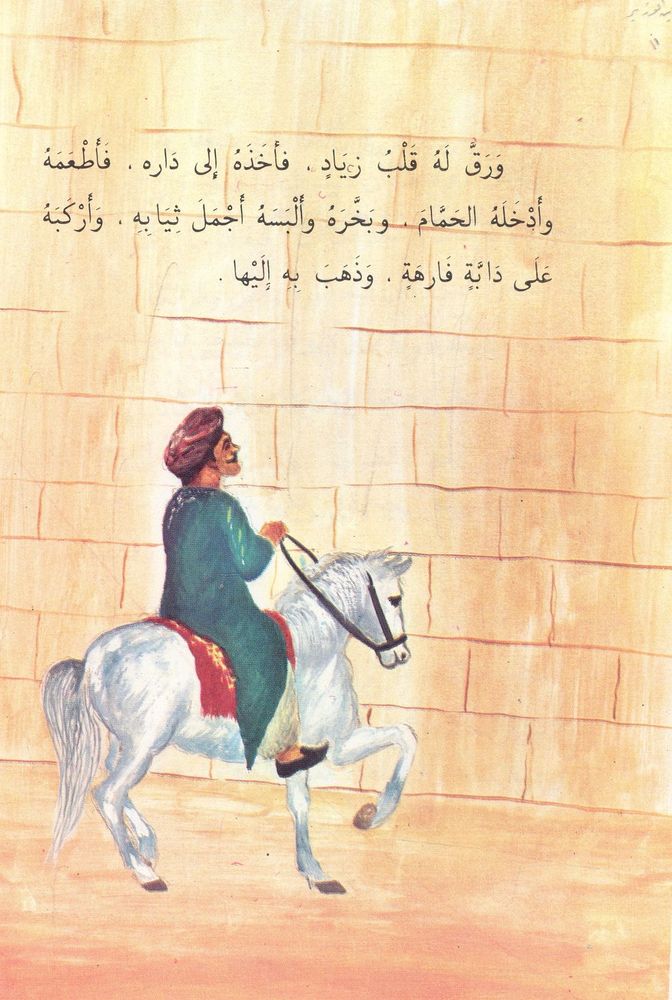 وَرَقَّ لَهُ قَلْبُ زِيَادٍ ، فأخَذَهُ إلى دَاره ، فَأَطْعَمَهُ
وأَدْخَلَهُ الحَمَّامَ ، وبَخَّرَهُ وأَلْبَسَهُ أَجْمَلَ ثِيَابِهِ ، وَأَرْكَبَهُ
عَلَى دَابَّةٍ فَارِهَةٍ ، وَذَهَبَ بِهِ إِلَيْها .